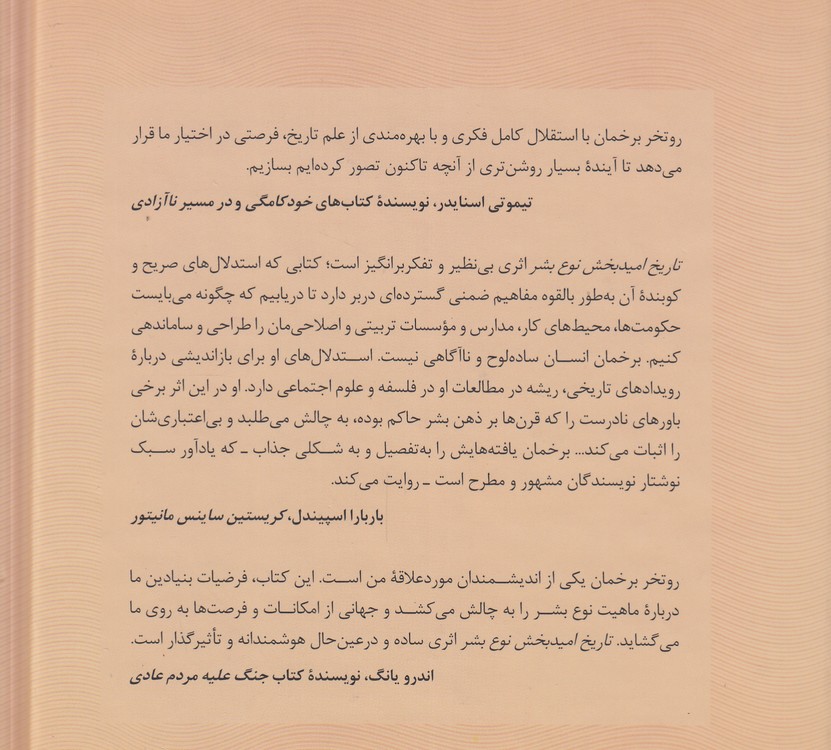 روتخر برخمان با استقلال کامل فکری و با بهره‌مندی از علم تاریخ، فرصتی در اختیار ما قرار
می‌دهد تا آیندهٔ بسیار روشن‌تری از آنچه تاکنون تصور کرده‌ایم بسازیم.
تیموتی اسنایدر، نویسندهٔ کتاب‌های خودکامگی و در مسیر ناآزادی
تاریخ امیدبخش نوع بشر اثری بی‌نظیر و تفکربرانگیز است؛ کتابی که استدلال‌های صریح و
کوبندهٔ آن به‌طور بالقوه مفاهیم ضمنی گسترده‌ای دربر دارد تا دریابیم که چگونه می‌بایست
حکومت‌ها، محیط‌های کار، مدارس و مؤسسات تربیتی و اصلاحی‌مان را طراحی و ساماندهی
کنیم. برخمان انسان ساده‌لوح و ناآگاهی نیست. استدلال‌های او برای بازاندیشی دربارهٔ
رویدادهای تاریخی، ریشه در مطالعات او در فلسفه و علوم اجتماعی دارد. او در این اثر برخی
باورهای نادرست را که قرن‌ها بر ذهن بشر حاکم بوده، به چالش می‌طلبد و بی‌اعتباری‌شان
را اثبات می‌کند... برخمان یافته‌هایش را به‌تفصیل و به شکلی جذاب ـ که یادآور سبک
نوشتار نویسندگان مشهور و مطرح است ـ روایت می‌کند.
باربارا اسپیندل، کریستین ساینس مانیتور
روتخر برخمان یکی از اندیشمندان موردعلاقهٔ من است. این کتاب، فرضیات بنیادین ما
دربارهٔ ماهیت نوع بشر را به چالش می‌کشد و جهانی از امکانات و فرصت‌ها به روی ما
می‌گشاید. تاریخ امیدبخش نوع بشر اثری ساده و درعین‌حال هوشمندانه و تأثیرگذار است.
اندرو یانگ، نویسندهٔ کتاب جنگ علیه مردم عادی